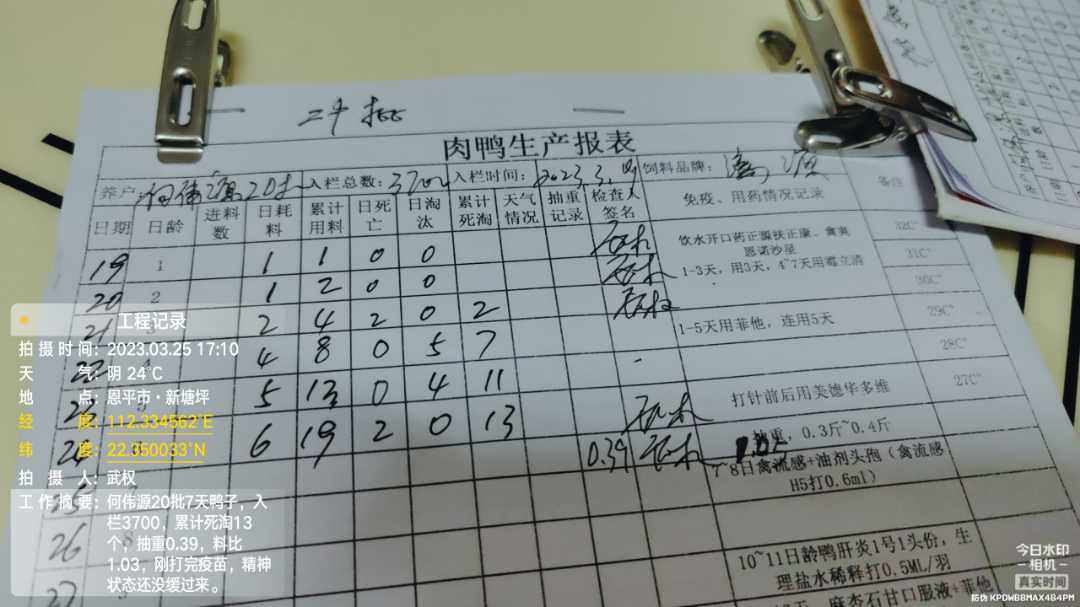 二十批
肉鸭生产报表
养户: 何伟源20批 入栏总数: 3700 入栏时间: 2023.3. 饲料品牌: 源
日期 日龄 进料数 日耗料 累计用料 日死亡 日淘汰 累计死淘 天气情况 抽重记录 检查人签名 免疫、用药情况记录 备注
19 1 1 1 0 0 饮水开口药正源扶正康、禽爽 32C°
恩诺沙星
20 2 1 2 0 0 1-3天，用3天，4~7天用霉立清 31C°
30C°
21 2 4 2 0 2 1-5天用菲他，连用5天 29C°
22 4 8 0 5 7 28C°
23 5 13 0 4 11 打针前后用美德华多维 27C°
24 6 19 2 0 13 抽重，0.3斤~0.4斤
0.39 7~8日禽流感+油剂头孢（禽流感
H5打0.6ml）
25
26 8 10~11日龄鸭肝炎1号1头份，生
理盐水稀释打0.5ML/羽
27 麻杏石甘口服液+菲他
工程记录
拍摄时间: 2023.03.25 17:10
天气: 阴 24℃
地点: 恩平市·新塘坪
经度: 112.334562°E
纬度: 22.350033°N
拍摄人: 武权
工作摘要: 何伟源20批7天鸭子，入
栏3700，累计死淘13
个，抽重0.39，料比
1.03，刚打完疫苗，精神
状态还没缓过来。
今日水印
相机
真实时间
防伪 KPDWBBMAX4B4PM